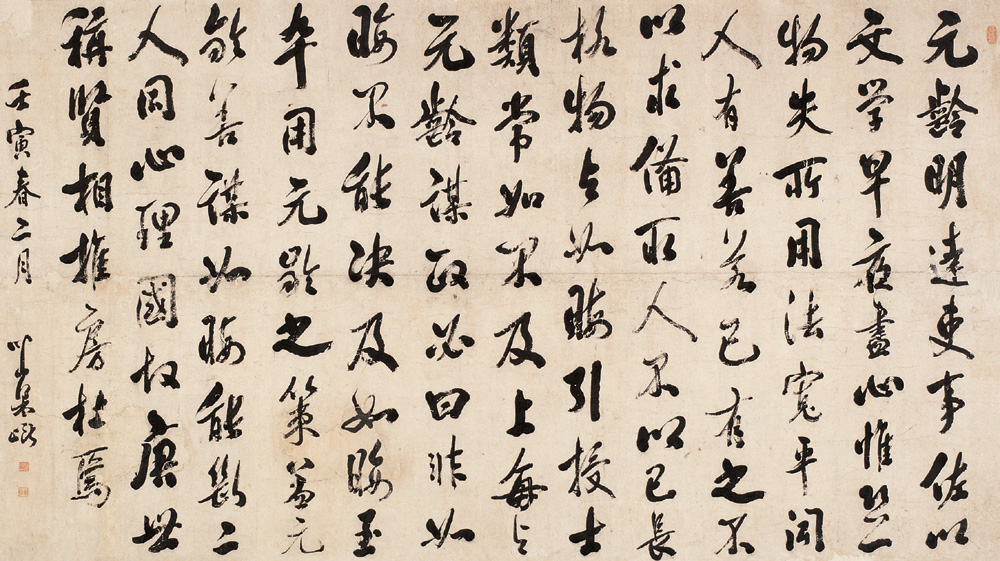 元齡明達吏事佐以
文学早夜盡心惟恐一
物失所用法寬平聞
人有善若己有之不
以求備取人不以己長
格物与如晦引授士
類常如不及上每与
元齡謀政必曰非如
晦不能決及如晦至
卒用元齡之策蓋元
齡善謀如晦能斷二
人同心理國故唐世
稱賢相推房杜焉
壬寅春二月